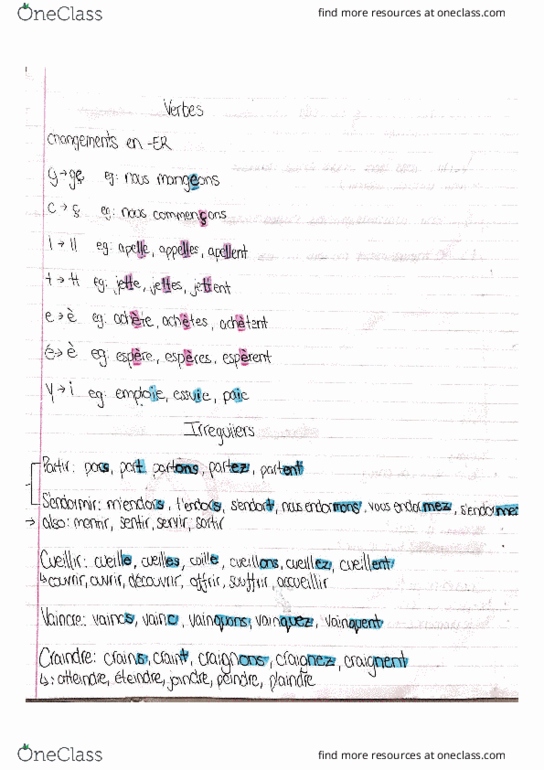 OneClass find more resources at oneclass.com
Verbes
changements en -ER
g → ge eg: nous mangeons
c → ç eg: nous commençons
l → ll eg: apelle, appelles, apellent
t → tt eg: jette, jettes, jettent
e → è eg: achète, achètes, achètent
é → è eg: espère, espères, espèrent
y → i eg: emploie, essuie, paie
Irreguliers
Partir: pars, part, partons, partez, partent
S'endormir: m'endors, t'endors, s'endort, nous endormons, vous endormez, s'endormen
→ also: mentir, sentir, servir, sortir
Cueillir: cueille, cueilles, ceille, cueillons, cueillez, cueillent
↳ couvrir, ouvrir, découvrir, offrir, souffrir, accueillir
Vaincre: vaincs, vainc, vainquons, vainquez, vainquent
Craindre: crains, craint, craignons, craignez, craignent
↳: atteindre, éteindre, joindre, peindre, plaindre
OneClass find more resources at oneclass.com